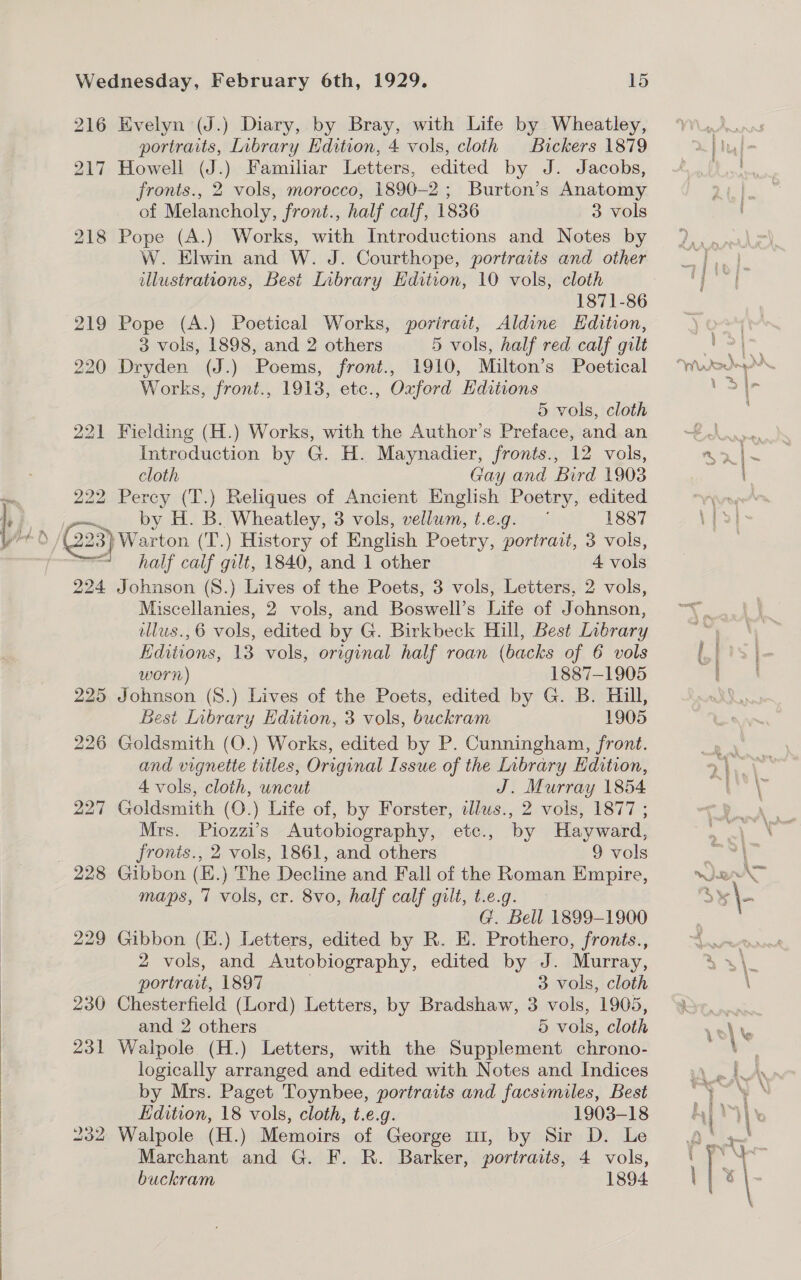 Wednesday, February 6th, 1929. 15
216 Evelyn (J.) Diary, by Bray, with Life by Wheatley,
portraits, Library Edition, 4 vols, cloth Bickers 1879
217 Howell (J.) Familiar Letters, edited by J. Jacobs,
fronts., 2 vols, morocco, 1890-2; Burton's Anatomy
of Melancholy, front., half calf, 1836 3 vols
218 Pope (A.) Works, with Introductions and Notes by
W. Elwin and W. J. Courthope, portraits and other
illustrations, Best Library Edition, 10 vols, cloth
1871-86
219 Pope (A.) Poetical Works, portrait, Aldine Edition,
3 vols, 1898, and 2 others 5 vols, half red calf gilt
220 Dryden (J.) Poems, front., 1910, Milton's Poetical
Works, front., 1913, etc., Oxford Editions
5 vols, cloth
221 Fielding (H.) Works, with the Author's Preface, and an
Introduction by G. H. Maynadier, fronts., 12 vols,
cloth Gay and Bird 1903
222 Percy (T.) Reliques of Ancient English Poetry, edited
by H. B. Wheatley, 3 vols, vellum, t.e.g. 1887
223 Warton (T.) History of English Poetry, portrait, 3 vols,
half calf gilt, 1840, and 1 other 4 vols
224 Johnson (S.) Lives of the Poets, 3 vols, Letters, 2 vols,
Miscellanies, 2 vols, and Boswell's Life of Johnson,
illus., 6 vols, edited by G. Birkbeck Hill, Best Library
Editions, 13 vols, original half roan (backs of 6 vols
worn) 1887-1905
225 Johnson (S.) Lives of the Poets, edited by G. B. Hill,
Best Library Edition, 3 vols, buckram 1905
226 Goldsmith (O.) Works, edited by P. Cunningham, front.
and vignette titles, Original Issue of the Library Edition,
4 vols, cloth, uncut J. Murray 1854
227 Goldsmith (O.) Life of, by Forster, illus., 2 vols, 1877;
Mrs. Piozzi's Autobiography, etc., by Hayward,
fronts., 2 vols, 1861, and others 9 vols
228 Gibbon (E.) The Decline and Fall of the Roman Empire,
maps, 7 vols, cr. 8vo, half calf gilt, t.e.g.
G. Bell 1899-1900
229 Gibbon (E.) Letters, edited by R. E. Prothero, fronts.,
2 vols, and Autobiography, edited by J. Murray,
portrait, 1897 3 vols, cloth
230 Chesterfield (Lord) Letters, by Bradshaw, 3 vols, 1905,
and 2 others 5 vols, cloth
231 Walpole (H.) Letters, with the Supplement chrono-
logically arranged and edited with Notes and Indices
by Mrs. Paget Toynbee, portraits and facsimiles, Best
Edition, 18 vols, cloth, t.e.g. 1903-18
232 Walpole (H.) Memoirs of George III, by Sir D. Le
Marchant and G. F. R. Barker, portraits, 4 vols,
buckram 1894